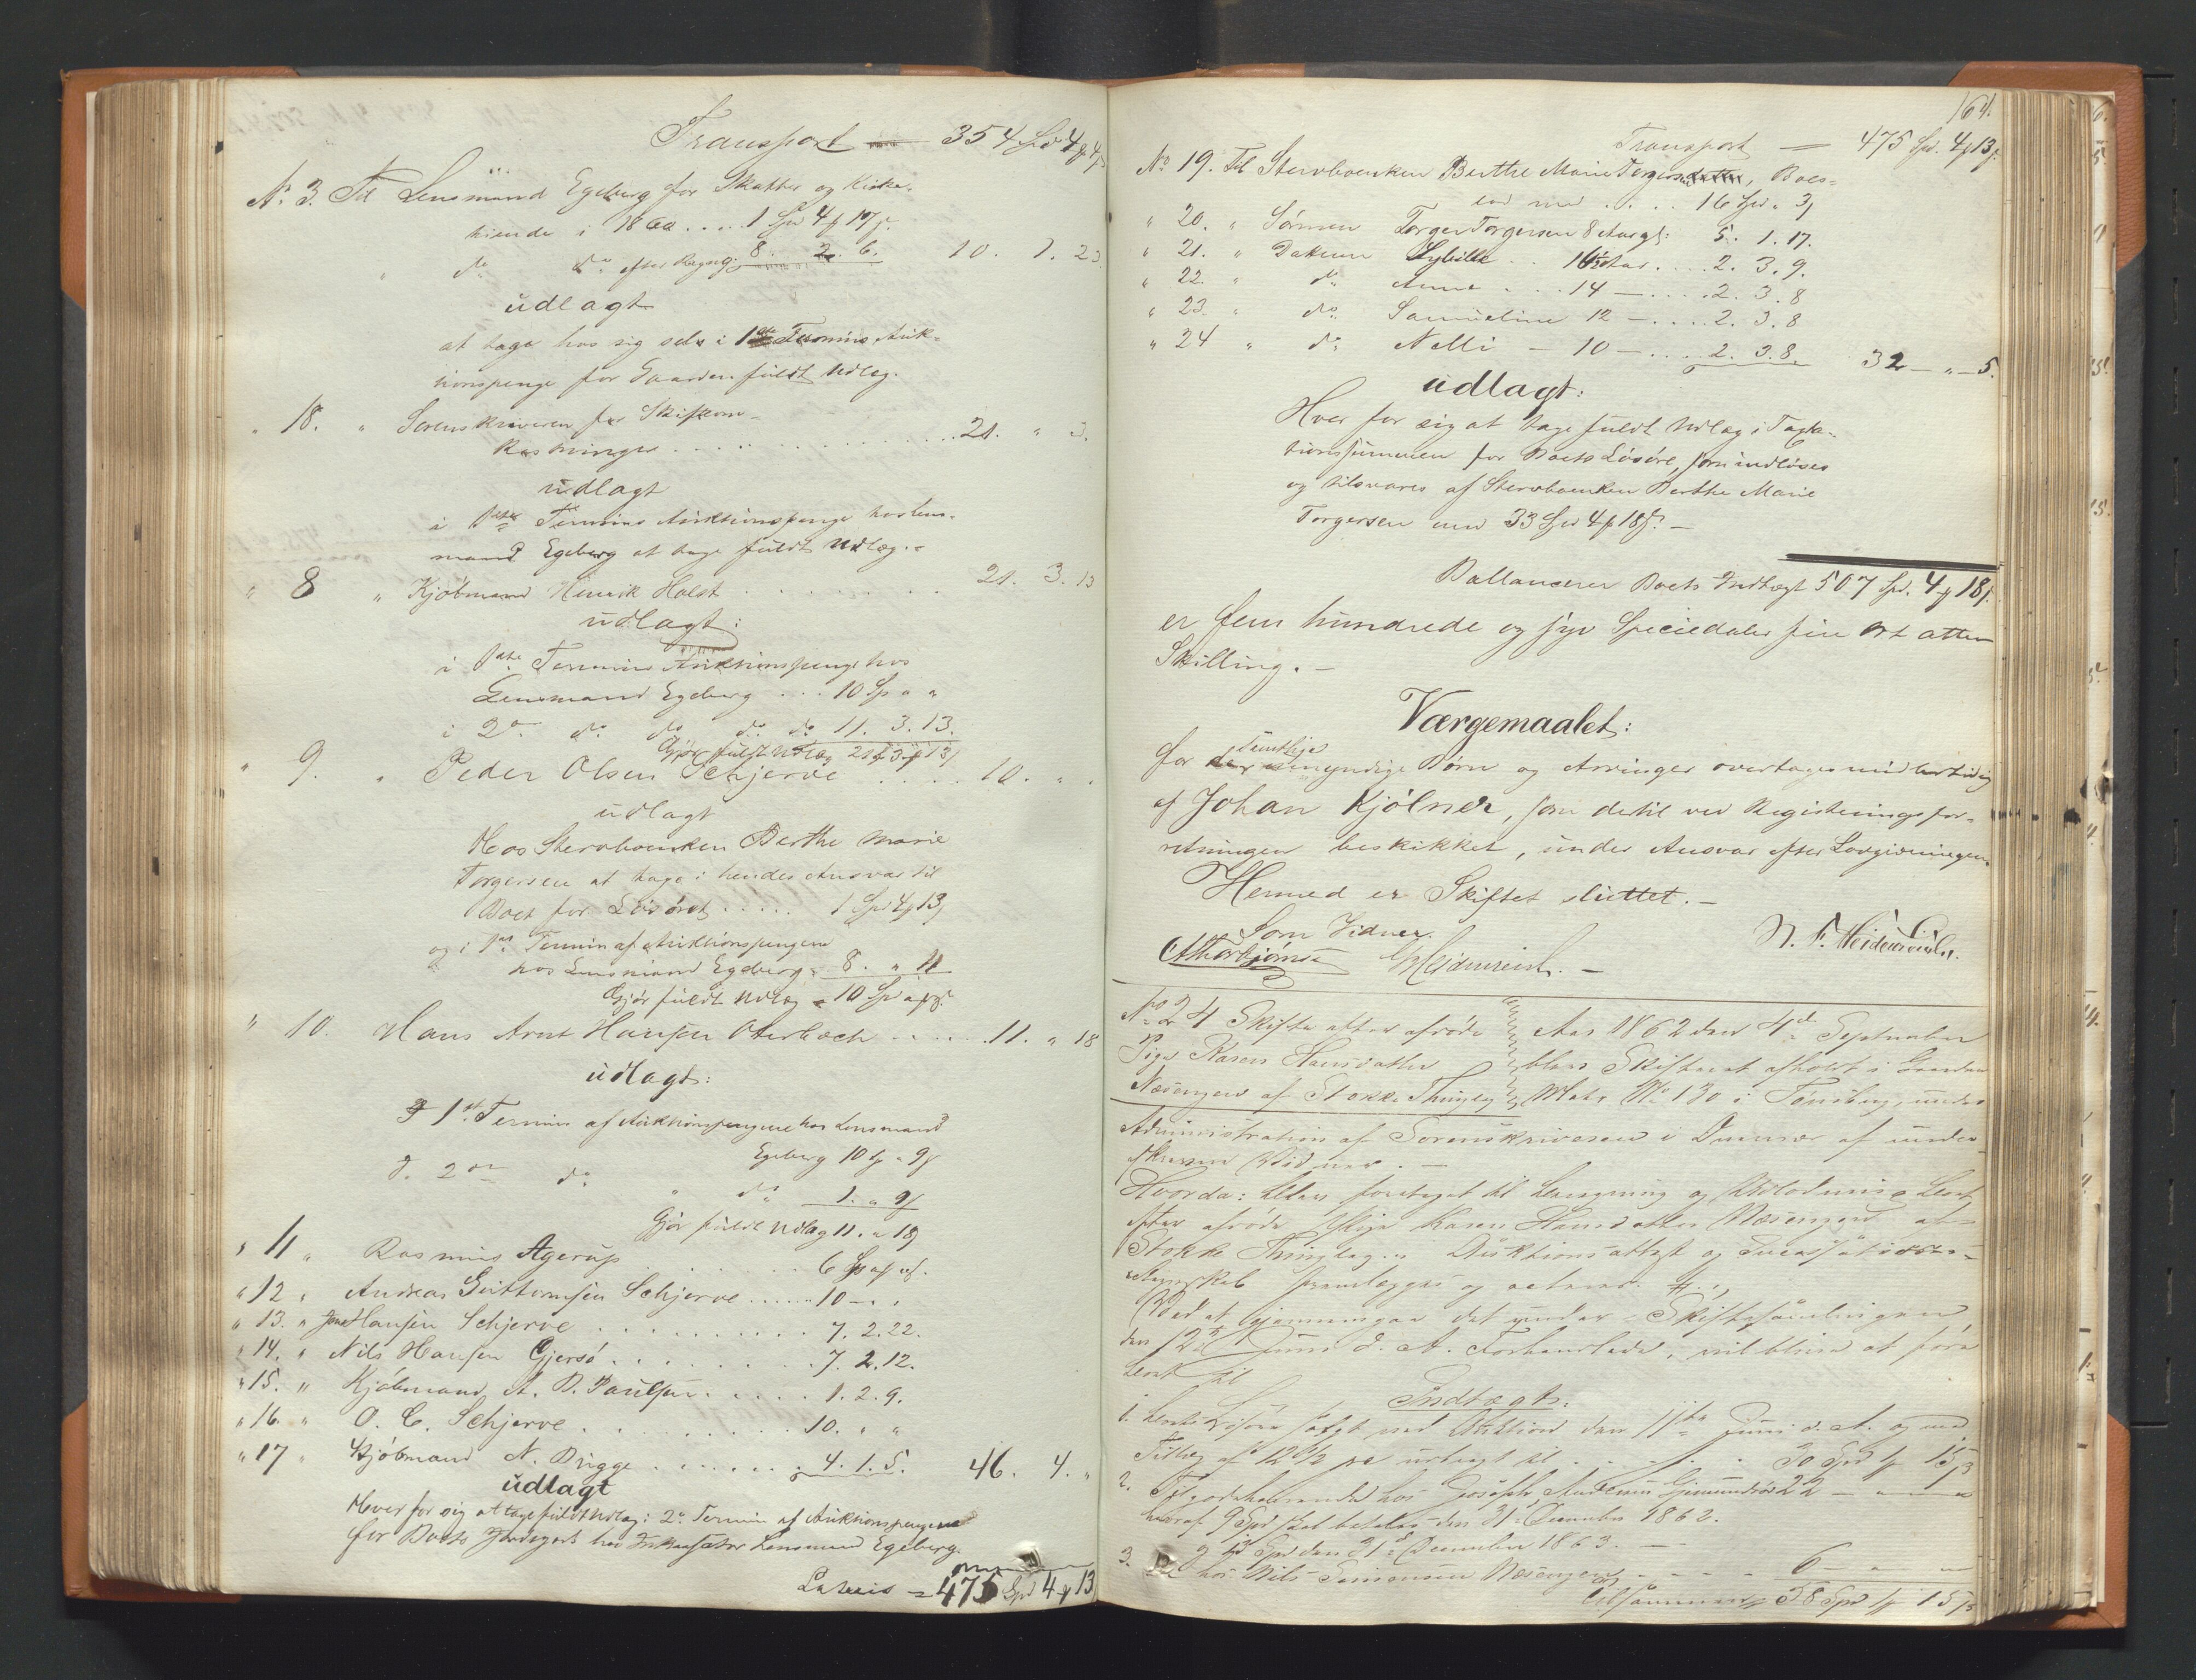 Transport — 354 Spd 4 ƒ 4 s
No 3. Til Lensmand Egeberg for Skatter og Kirke-
tiende i 1860 .... 1 Spd 4 ƒ 17 s.
" do do efter Regng. 8. 2. 6. 10. 1. 23.
udlagt
at tage hos sig selv i 1ste Termins Auk-
tionspenge for Gaarden fuldt Udlæg.
" 18. " Sorenskriveren for Skifteom-
kostninger . . . . . . . 21. " 3.
udlagt
i 1ste Termins Auktionspenge hos Lens-
mand Egeberg at tage fuldt Udlæg. -
" 8 " Kjøbmand Henrik Holst . . . . . . 21. 3. 13
udlagt:
i 1ste Termins Auktionspenge hos
Lensmand Egeberg . . . 10 Sp " "
i 2en do do do do 11. 3. 13.
Gjør fuldt Udlæg 21 ƒ 3 ƒ 13
" 9. " Peder Olsen Schjerve . . . . 10. " .
udlagt
Hos Stervboenken Berthe Marie
Torgersen at tage i hendes Ansvar til
Boet for Løsøret . . . . . 1 Spd 4 ƒ 13
og i 1ste Termin af Auktionspengene
hos Lensmand Egeberg 8. " 11
Gjør fuldt Udlæg = 10 Spd
" 10. Hans Arnt Hansen Oterbech . . . . . . 11. " 18
udlagt:
I 1st Termin af Auktionspengene hos Lensmand
Egeberg 10 Sp " 9
I. 2den do " do 1. " 9
Gjør fuldt Udlæg 11. " 18
" 11 " Rasmus Agerup . . . . . 6 Spd
" 12 " Andreas Guttormsen Schjerve ...... 10 — . .
" 13. " Hansen Schjerve . . . . . . . . . 7. 2. 22.
" 14. " Nils Hansen Gjersø . . . . . . . . 7. 2. 12.
" 15. " Kjøbmand A. B. Paulsen . . . . . 1. 2. 9.
" 16. " O. C. Schjerve . . . . . . . . . 10. " "
" 17 " Kjøbmand N. Bugge . . . . . . . 4. 1. 5. 46. 4. "
udlagt
Hver for sig at tage fuldt Udlæg i 2en Termin af Auktionspengene
for Boets Jordegods hos Inkassator Lensmand Egeberg.
Lateris = 475 Spd 4 ƒ 13
164.
Transport — 475 Spd. 4 ƒ 13 s.
No 19. Til Stervboenken Berthe Marie Torgersen, Boes-
lod med . . . . 16 Spd. " 3
" 20. " Sønnen Torger Torgersen 8 Aar gl: 5. 1. 17.
" 21. " Datteren Sybille . . 16 Aar . . . . 2. 3. 9.
" 22. " do Anne . . . 14 — . . . . 2. 3. 8
" 23. " do Samueline 12 — . . . . 2. 3. 8
" 24 " do Nelli — 10 — . . . . 2. 3. 8. 32 — " — 5.
udlagt:
Hver for sig at tage fuldt Udlæg i Taxta-
tionssummen for Boets Løsøre, som indløses
og tilsvares af Stervboenken Berthe Marie
Torgersen med 33 Spd 4 ƒ 18 s. —
Ballancerer Boets Indtægt 507 Spd. 4 ƒ 18 s.
er fem hundrede og syv Speciedaler fire Ort atten
Skilling. —
Værgemaalet:
samtlige
for de umyndige Børn og Arvinger overtages midlertidig
af Johan Kjølner, som dertil ved Registreringsfor-
retningen beskikket, under Ansvar efter Lovgivningen.
Hermed er Skiftet sluttet. —
Som Vidner. N. F. Heidenreich.
Heidenreich. —
No 24 Skifte efter afdøde
Pige Karen Hansdatter
Næsengen af Stokke Thinglag
Aar 1862 den 4de September
blev Skifteret afholdt i Gaarden
Matr. No 130 i Tønsberg, under
Administration af Sorenskriveren i Overvær af under-
skrevne Vidner. —
Hvorda: blev foretaget til Beregning og Udlodning Boet
efter afdøde Pige Karen Hansdatter Næsengen af
Stokke Thinglag. Auktionsattest og
regnskab fremlægges og acteres.
Ved at gjennemgaa det under Skiftesamlingen
den 12te Juni d. A. Forhandlede, vil blive at føre
Boet til
Indtægt:
1. Boets Løsøre solgt ved Auktion den 11te Juni d. A. og med
Tillæg af 12½ pc udbragt til . . . . . 30 Spd ƒ 15 s
2. Tilgodehavende hos Joseph Andersen 22 — " — "
hvoraf 9 Spd skal betales den 31te December 1862.
og 13 Spd den 31te December 1863. —
3. Do hos Nils Simonsen Næsengen . . . . . 6 " —
Tilsammen 58 Spd ƒ 15 s